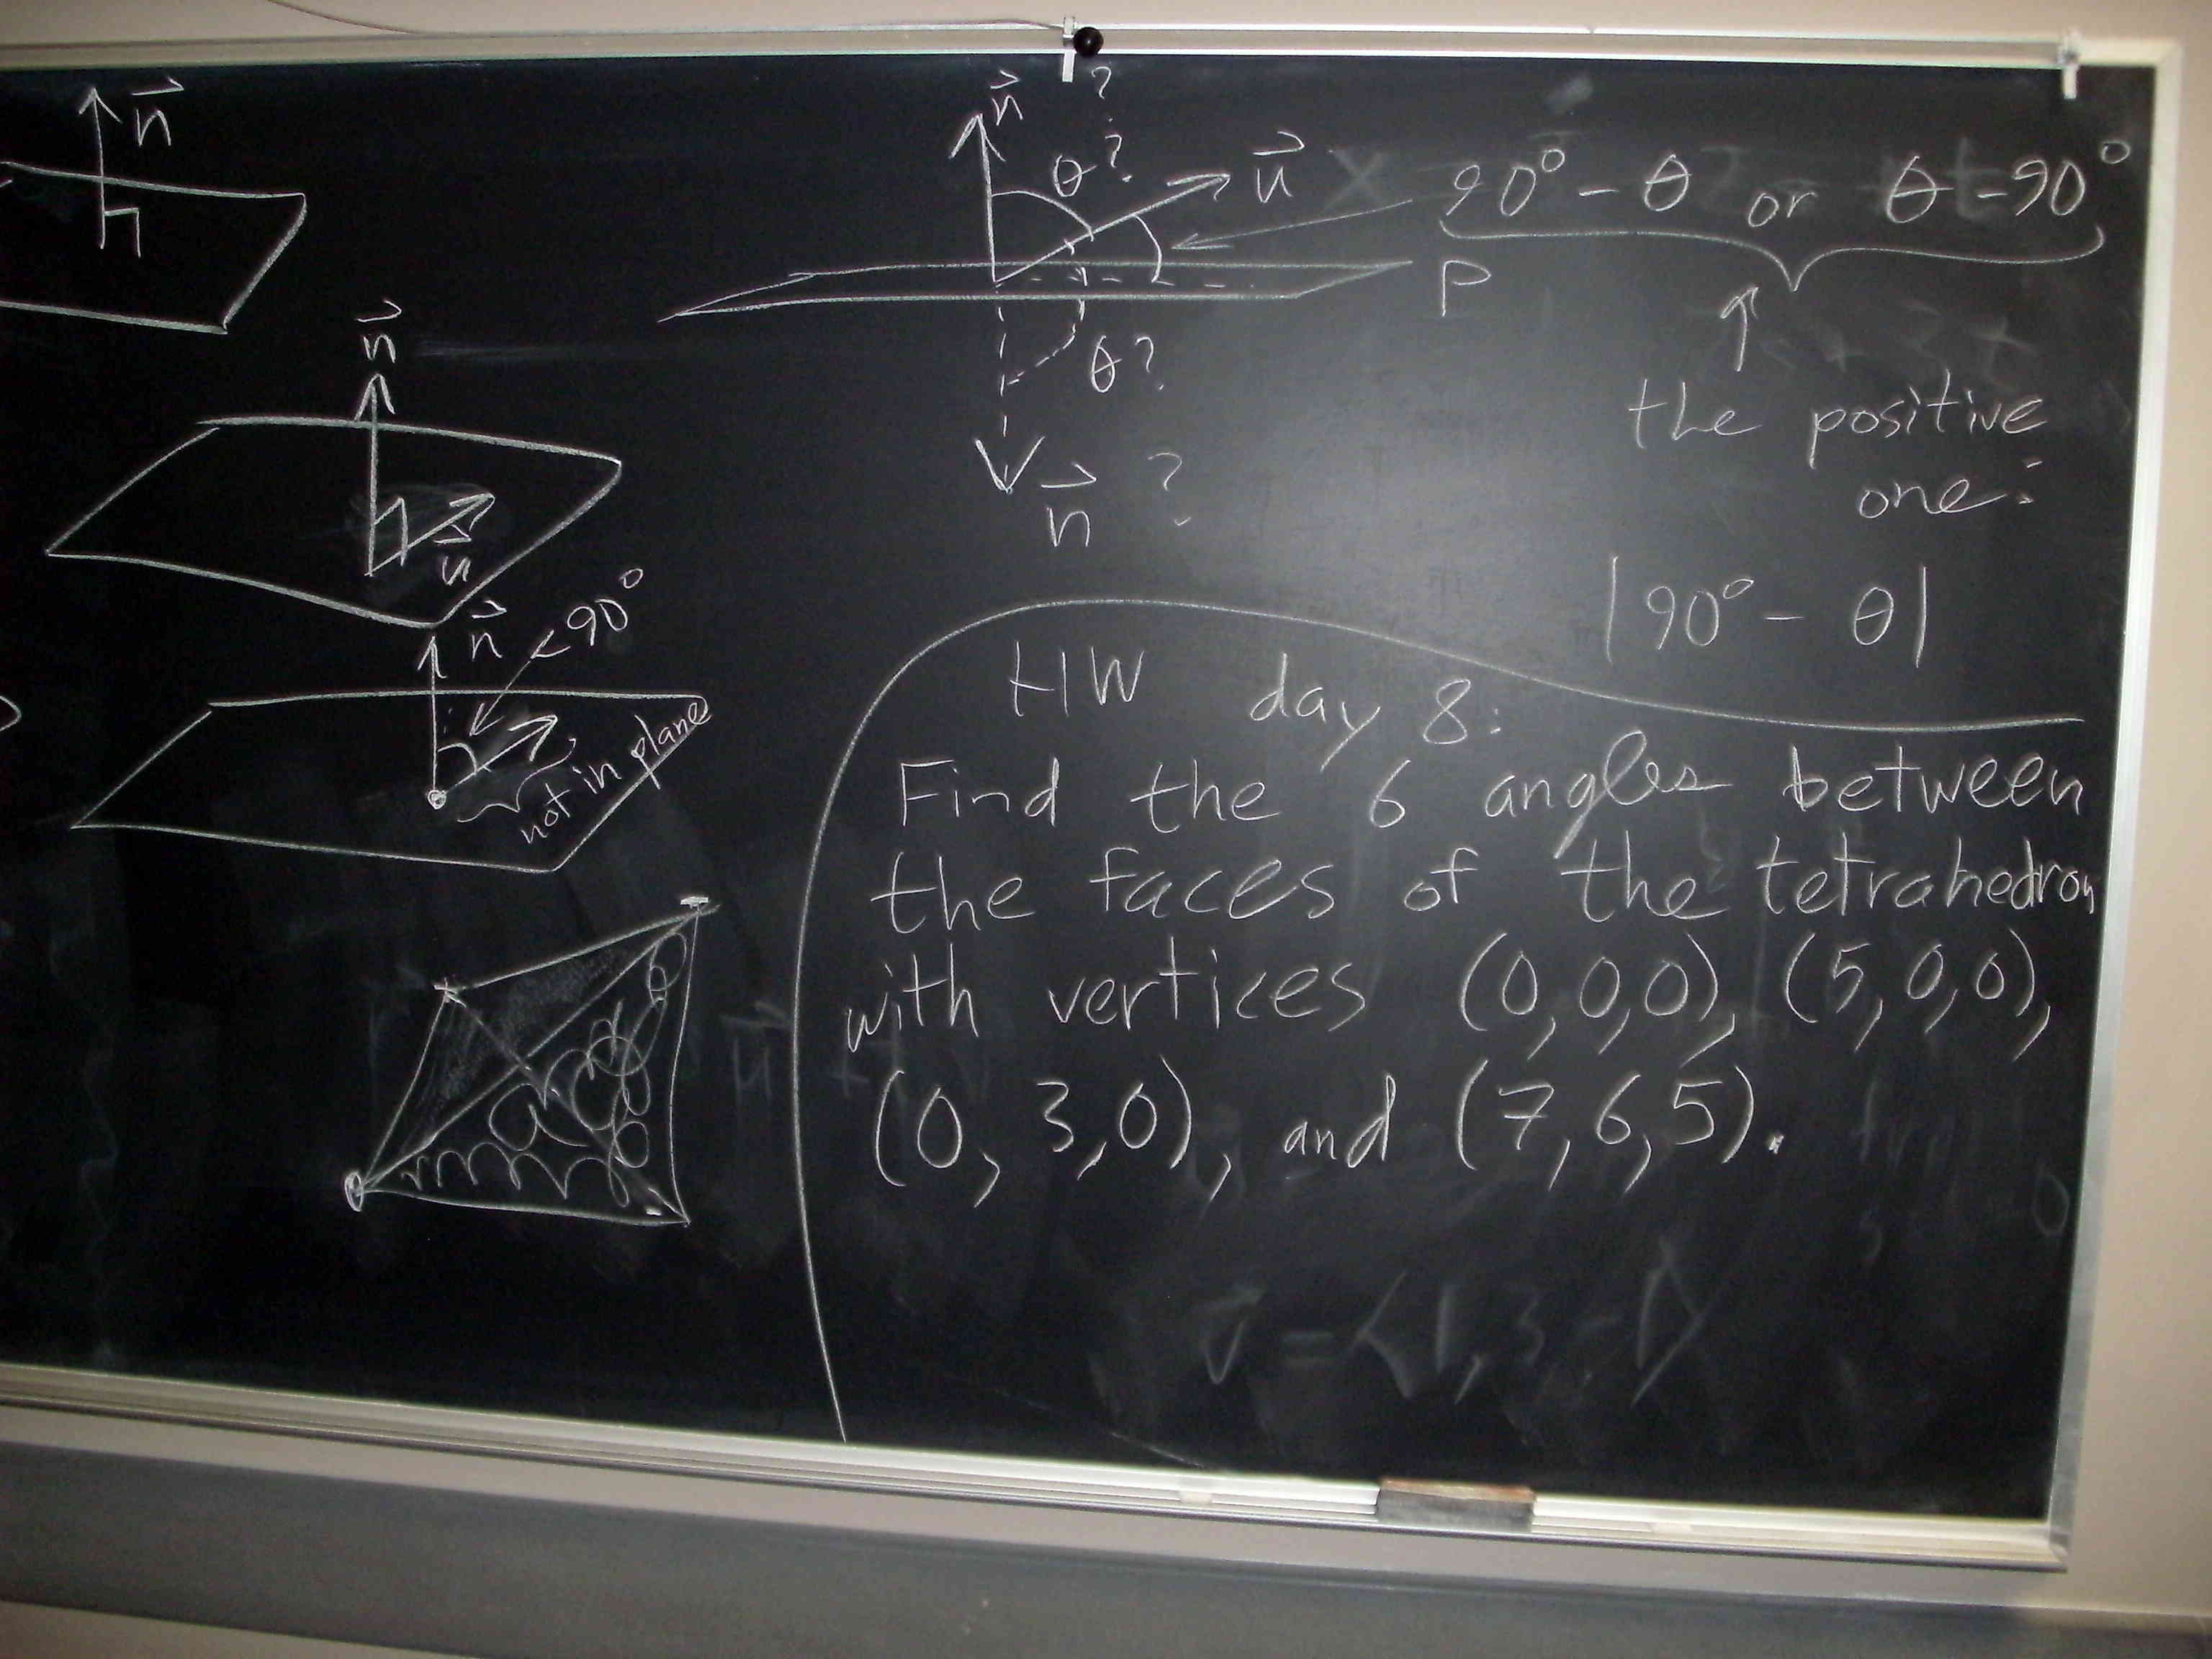 n⃗
n⃗
u⃗
n⃗
<90°
not in plane
n⃗ ?
θ?
u⃗
90° - θ or θ - 90°
P
θ?
n⃗ ?
the positive
one:
|90° - θ|
HW day 8:
Find the 6 angles between
the faces of the tetrahedron
with vertices (0,0,0), (5,0,0),
(0, 3,0), and (7,6,5).